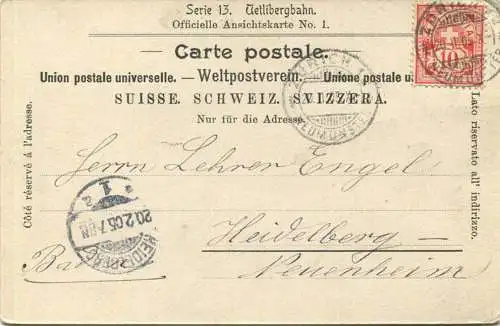 Serie 13. Uetlibergbahn.
Officielle Ansichtskarte No. 1.
Carte postale.
Union postale universelle. – Weltpostverein. – Unione postale
SUISSE. SCHWEIZ. SVIZZERA.
Nur für die Adresse.
Côté réservé à l'adresse.
Lato riservato all' indirizzo.
Herrn Lehrer Engel
Heidelberg –
Neuenheim
ZÜRICH
10
HEIDELBERG
20.2.05.7-8N
1